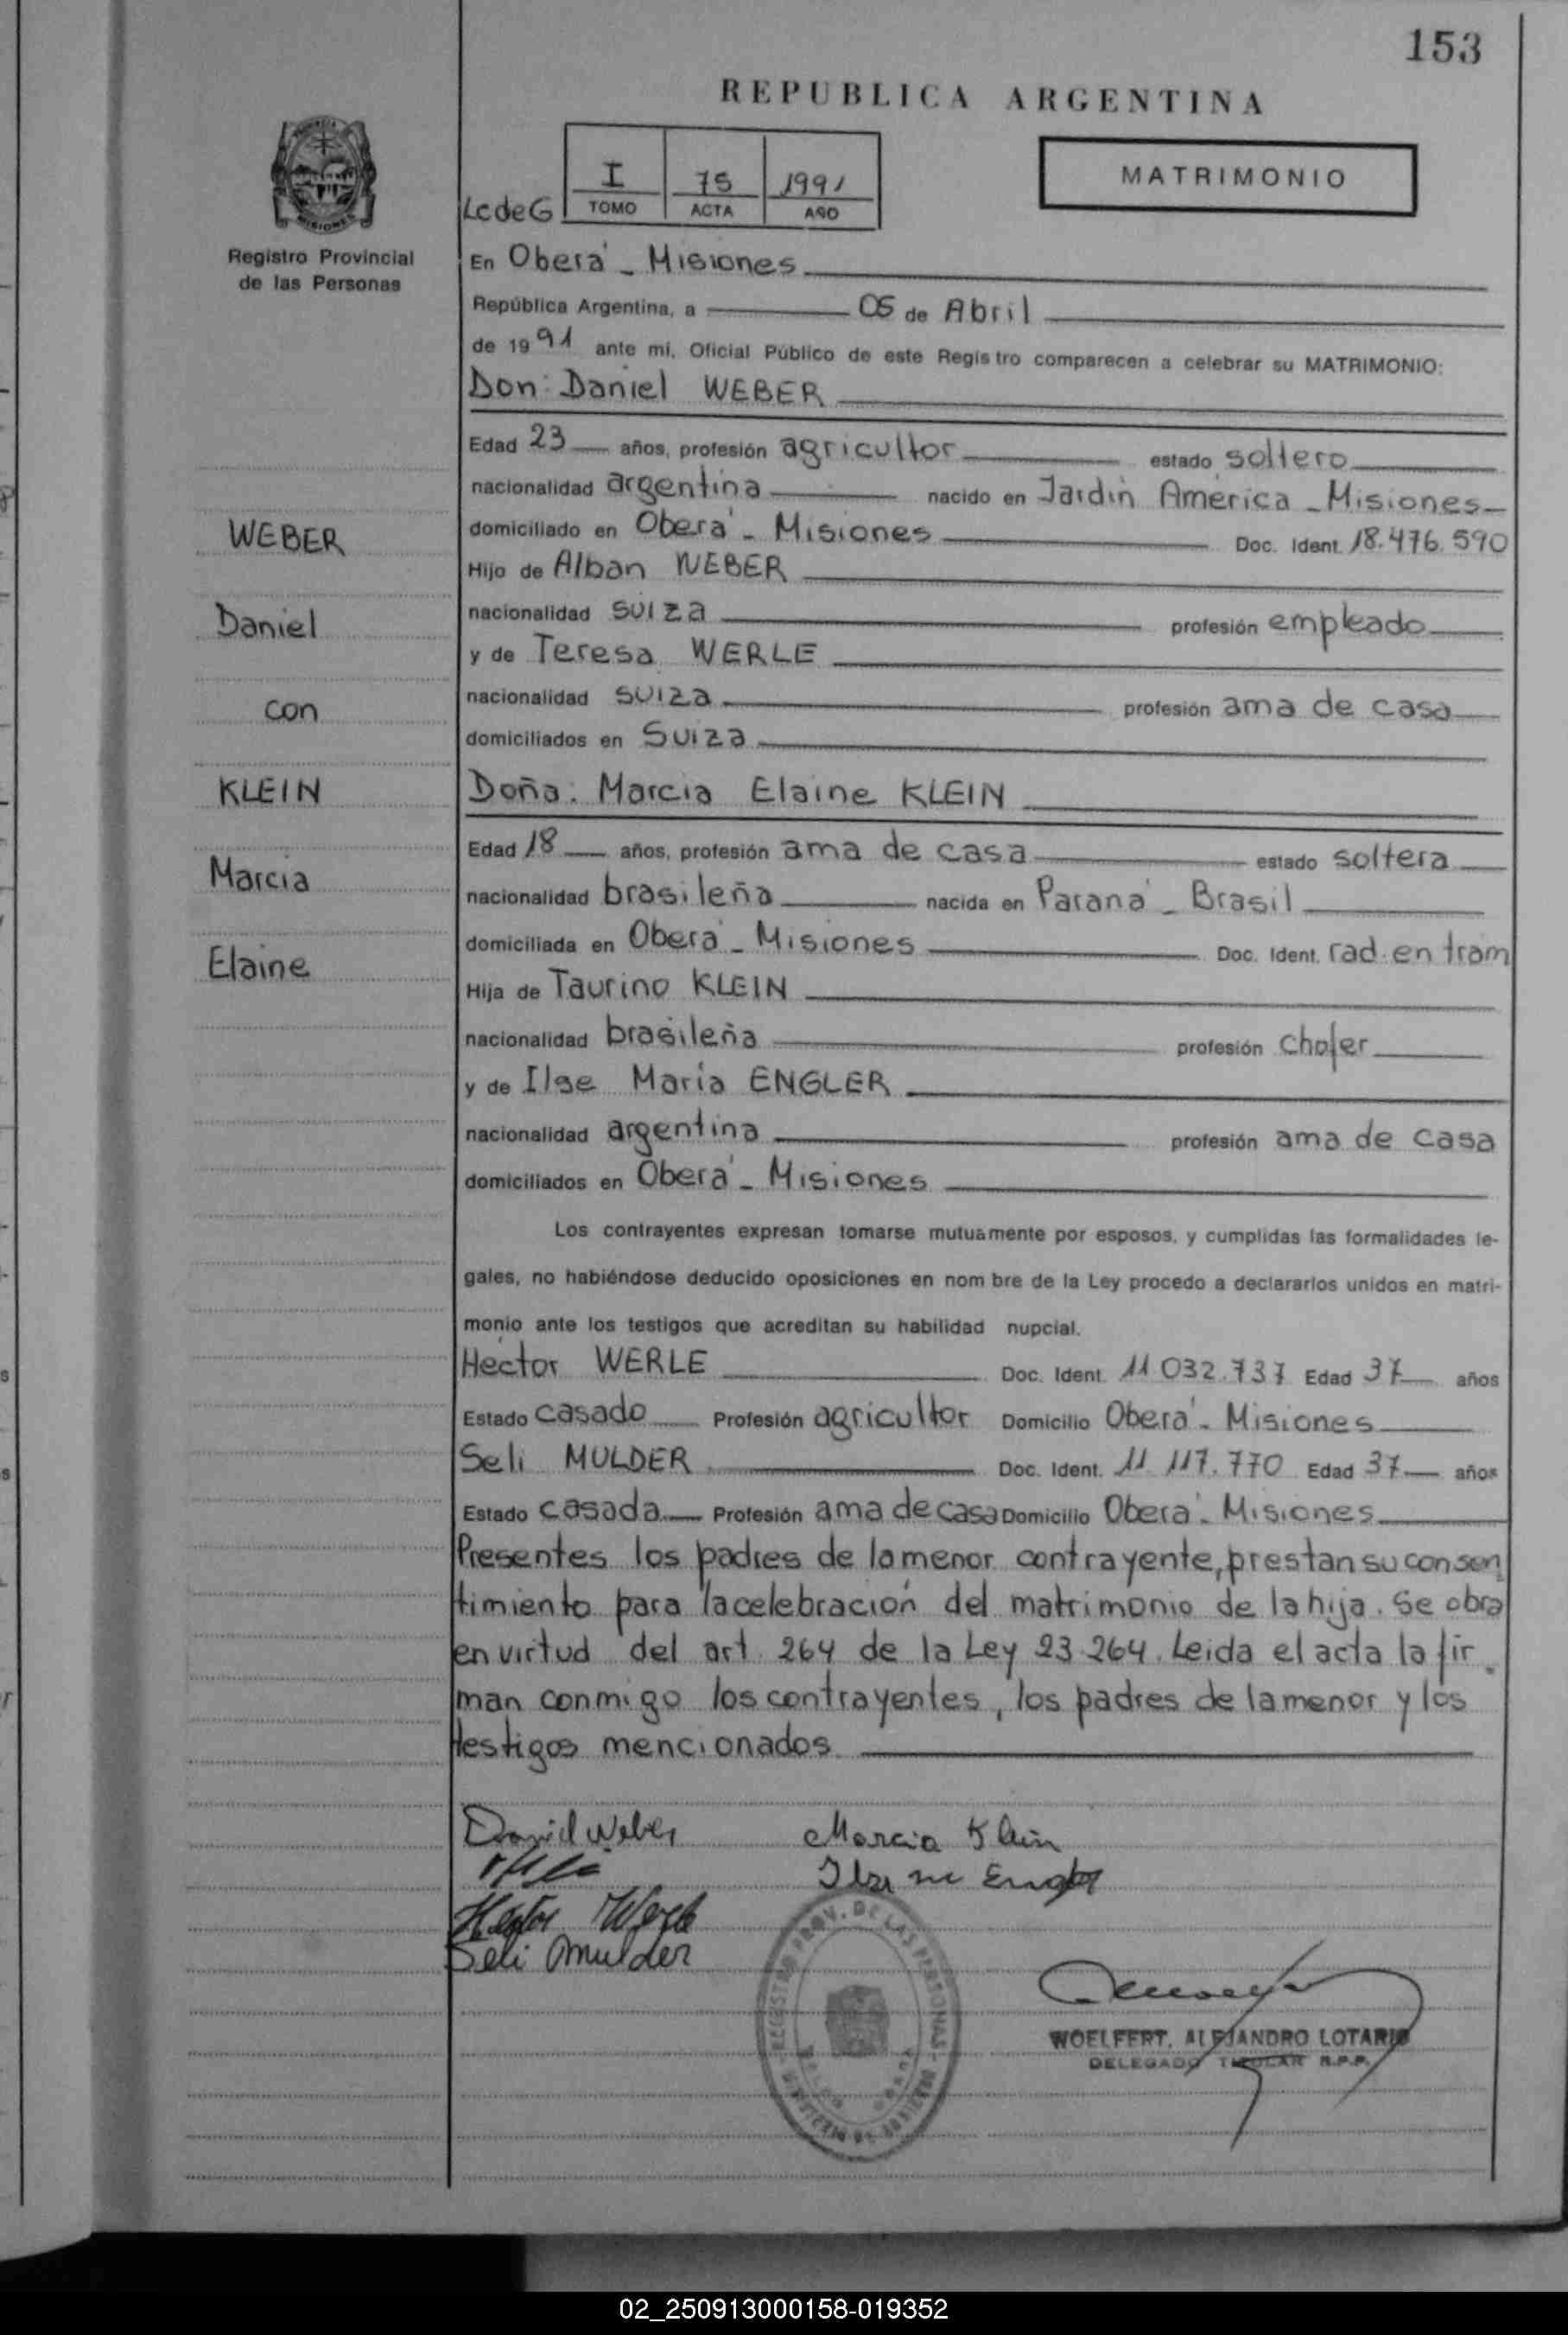 153
REPUBLICA ARGENTINA
MATRIMONIO
I 75 1991
LcdeG TOMO ACTA AÑO
Registro Provincial
de las Personas
En Oberá - Misiones
República Argentina, a 05 de Abril
de 1991 ante mi, Oficial Público de este Registro comparecen a celebrar su MATRIMONIO:
Don: Daniel WEBER
Edad 23 años, profesión agricultor estado soltero
nacionalidad argentina nacido en Jardín América - Misiones
domiciliado en Oberá - Misiones Doc. Ident. 18.476.590
Hijo de Alban WEBER
nacionalidad suiza profesión empleado
y de Teresa WERLE
nacionalidad suiza profesión ama de casa
domiciliados en Suiza
WEBER
Daniel
con
KLEIN
Marcia
Elaine
Doña: Marcia Elaine KLEIN
Edad 18 años, profesión ama de casa estado soltera
nacionalidad brasileña nacida en Paraná - Brasil
domiciliada en Oberá - Misiones Doc. Ident. rad. en tram
Hija de Taurino KLEIN
nacionalidad brasileña profesión chofer
y de Ilse María ENGLER
nacionalidad argentina profesión ama de casa
domiciliados en Oberá - Misiones
Los contrayentes expresan tomarse mutuamente por esposos, y cumplidas las formalidades le-
gales, no habiéndose deducido oposiciones en nom bre de la Ley procedo a declararlos unidos en matri-
monio ante los testigos que acreditan su habilidad nupcial.
Hector WERLE Doc. Ident. 11.032.737 Edad 37 años
Estado casado Profesión agricultor Domicilio Oberá - Misiones
Seli MULDER Doc. Ident. 11.117.770 Edad 37 años
Estado casada Profesión ama de casa Domicilio Oberá - Misiones
Presentes los padres de la menor contrayente, prestan su consen
timiento para la celebración del matrimonio de la hija. Se obra
en virtud del art. 264 de la Ley 23.264. Leida el acta la fir
man conmigo los contrayentes, los padres de la menor y los
testigos mencionados
Daniel Weber Marcia Klein
Ilse M Engler
Hector Werle
Seli Mulder
REGISTRO PROV. DE LAS PERSONAS
WOELFERT, ALEJANDRO LOTARIO
DELEGADO TITULAR R.P.P.
02_250913000158-019352